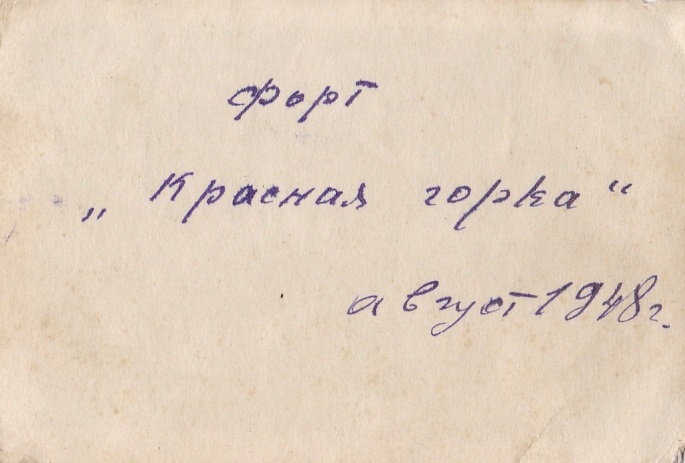 форт
„ Красная горка “
август 1948 г.